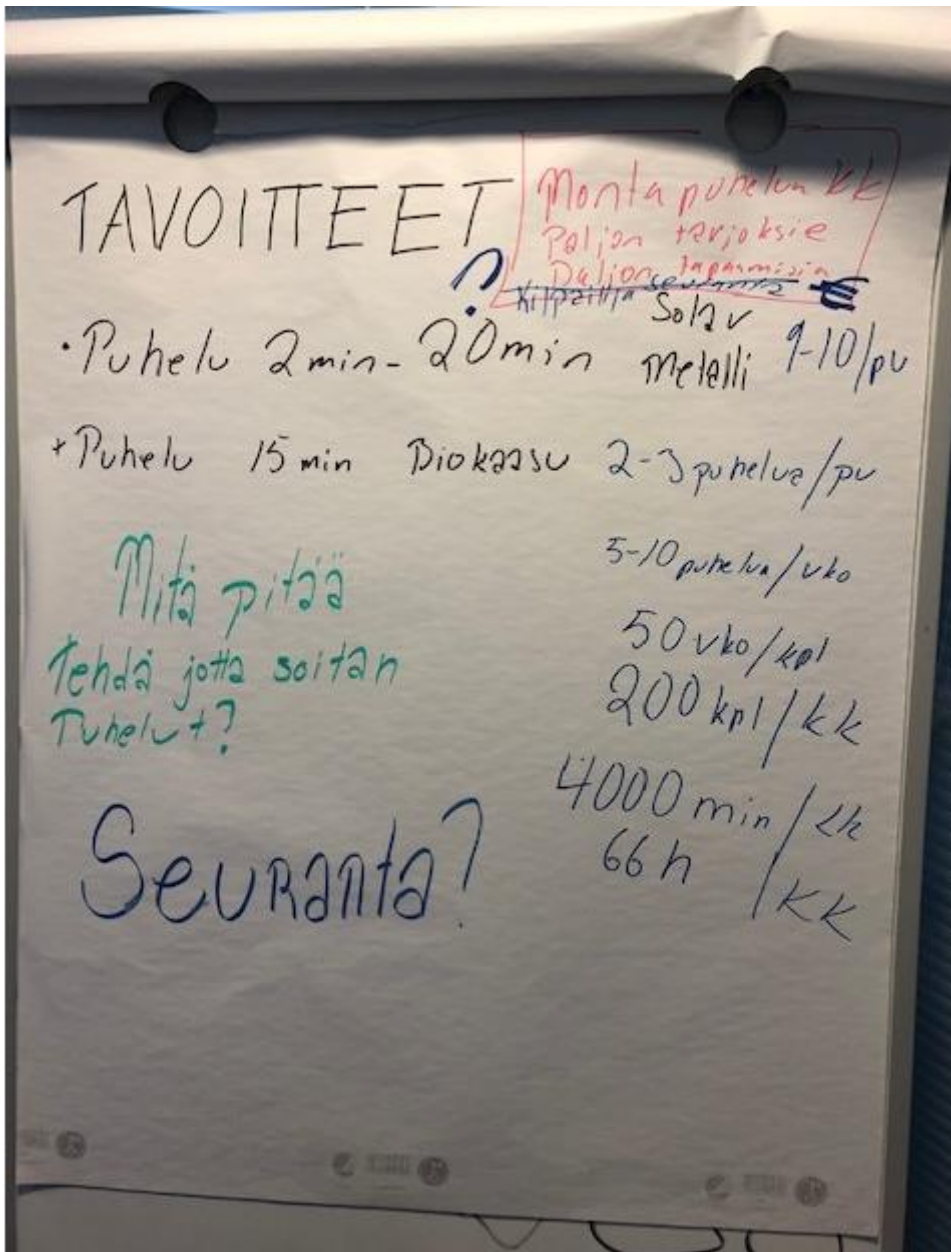 TAVOITTEET
Monta puhelua kk
Paljon tarjoksie
Paljon tapaamisia
? Kilpailija seuranta €
• Puhelu 2 min - 20 min Solar Metalli 9-10/pv
+ Puhelu 15 min Biokaasu 2-3 puhelua/pv
5-10 puhelua/vko
Mitä pitää
tehdä jotta soitan
Puhelut?
50 vko/kpl
200 kpl/kk
4000 min/kk
66 h /kk
Seuranta?